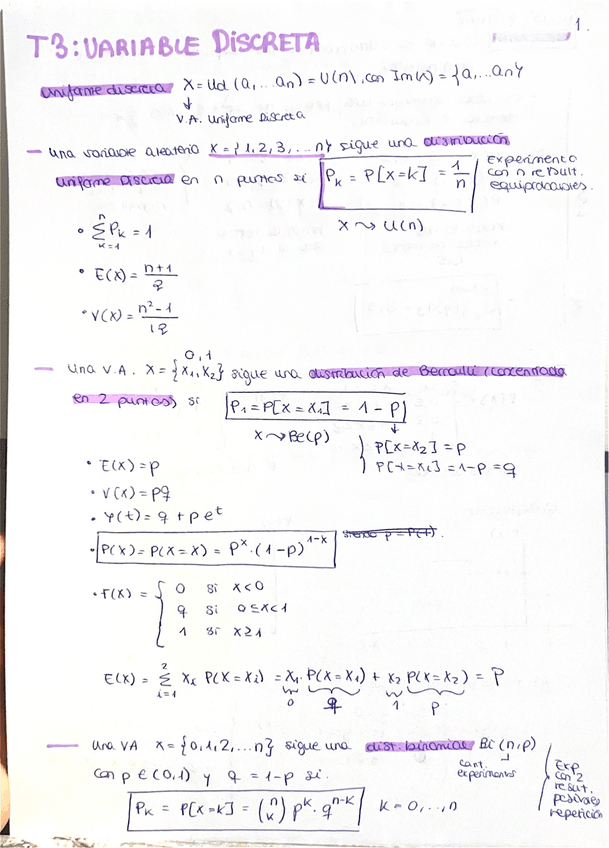 1.
T3: VARIABLE DISCRETA
Uniforme discreta X = Ud (a, ... an) = U(n), con Im(x) = {a, ... an}
↓
V.A. Uniforme Discreta
— Una variable aleatoria X = {1, 2, 3, ... n} sigue una distribución
uniforme Discreta en n puntos si Pk = P[x=k] = 1/n
Experimento
con n result.
equiprobables.
X ⤳ U(n)
• ∑_{k=1}^{n} Pk = 1
• E(x) = (n+1)/2
• V(x) = (n² - 1)/12
0, 1
— Una V.A. X = {x1, x2} sigue una distribución de Bernoulli (concentrada
en 2 puntos) si P1 = P[X = X1] = 1 - P
X ⤳ Be(p)
↓
P[X=X2] = P
P[X=X1] = 1-P = q
• E(X) = p
• V(X) = pq
• φ(t) = q + p e^t
• P(X) = P(X = x) = P^x · (1-p)^{1-x}
• F(x) = { 0 si x<0
q si 0≤x<1
1 si x≥1
E(X) = ∑_{i=1}^{2} xi P(X = Xi) = X1 · P(X = X1) + X2 P(X = X2) = P
0 q 1 P
— Una VA X = {0, 1, 2, ... n} sigue una dist. binomial Bi (n, p)
con p ∈ (0,1) y q = 1-p si.
cant.
experimentos
Exp
con 2
result.
posibles
repetición
Pk = P[X = k] = (n k) p^k · q^{n-k} k = 0, .., n